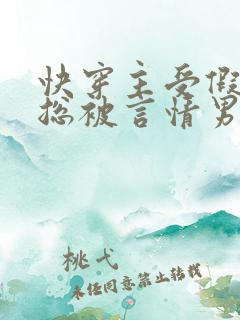 快穿主受假
总被言情男
桃弋
未经同意禁止转载